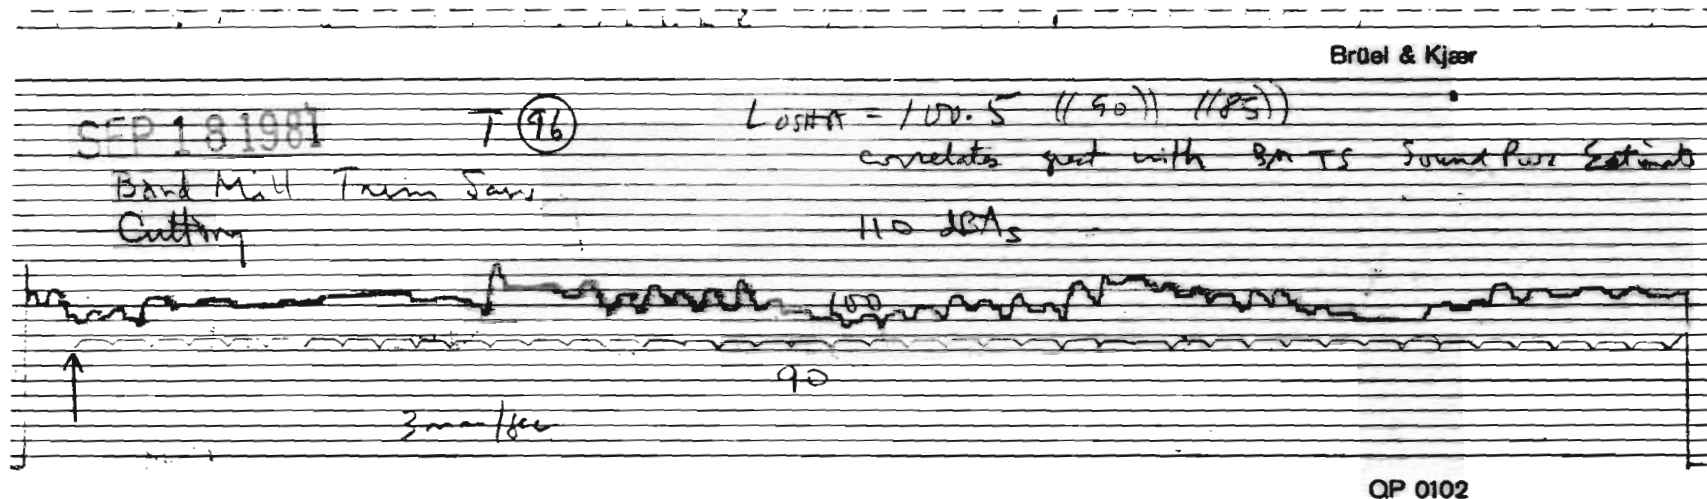 Brüel & Kjær
SEP 18 1981
T 96
LOSHA = 100.5 ((90)) ((85))
correlates great with BM TS Sound Pwr Estimate
Band Mill Trim Saws
Cutting
110 dBAs
100
90
3mm/sec
QP 0102